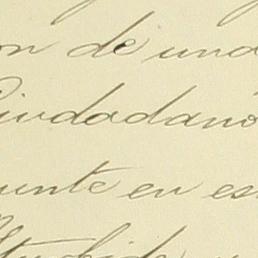 on de una
Ciudadano
unte en es